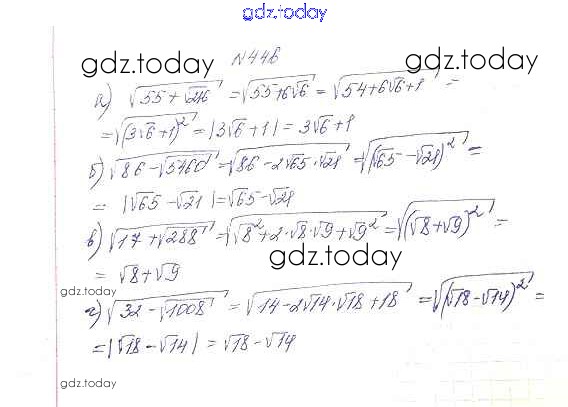 gdz.today
N446
gdz.today gdz.today
а) √(55 + √216) = √(55+6√6) = √(54+6√6+1) =
= √((3√6+1)²) = |3√6+1| = 3√6+1
б) √(86 - √5460) = √(86 - 2√65·√21) = √((√65 - √21)²) =
= |√65 - √21| = √65 - √21
в) √(17 + √288) = √(√8² + 2·√8·√9 + √9²) = √((√8+√9)²) =
= √8 + √9
gdz.today
gdz.today
г) √(32 - √1008) = √(14 - 2√14·√18 + 18) = √((√18 - √14)²) =
= |√18 - √14| = √18 - √14
gdz.today
gdz.today